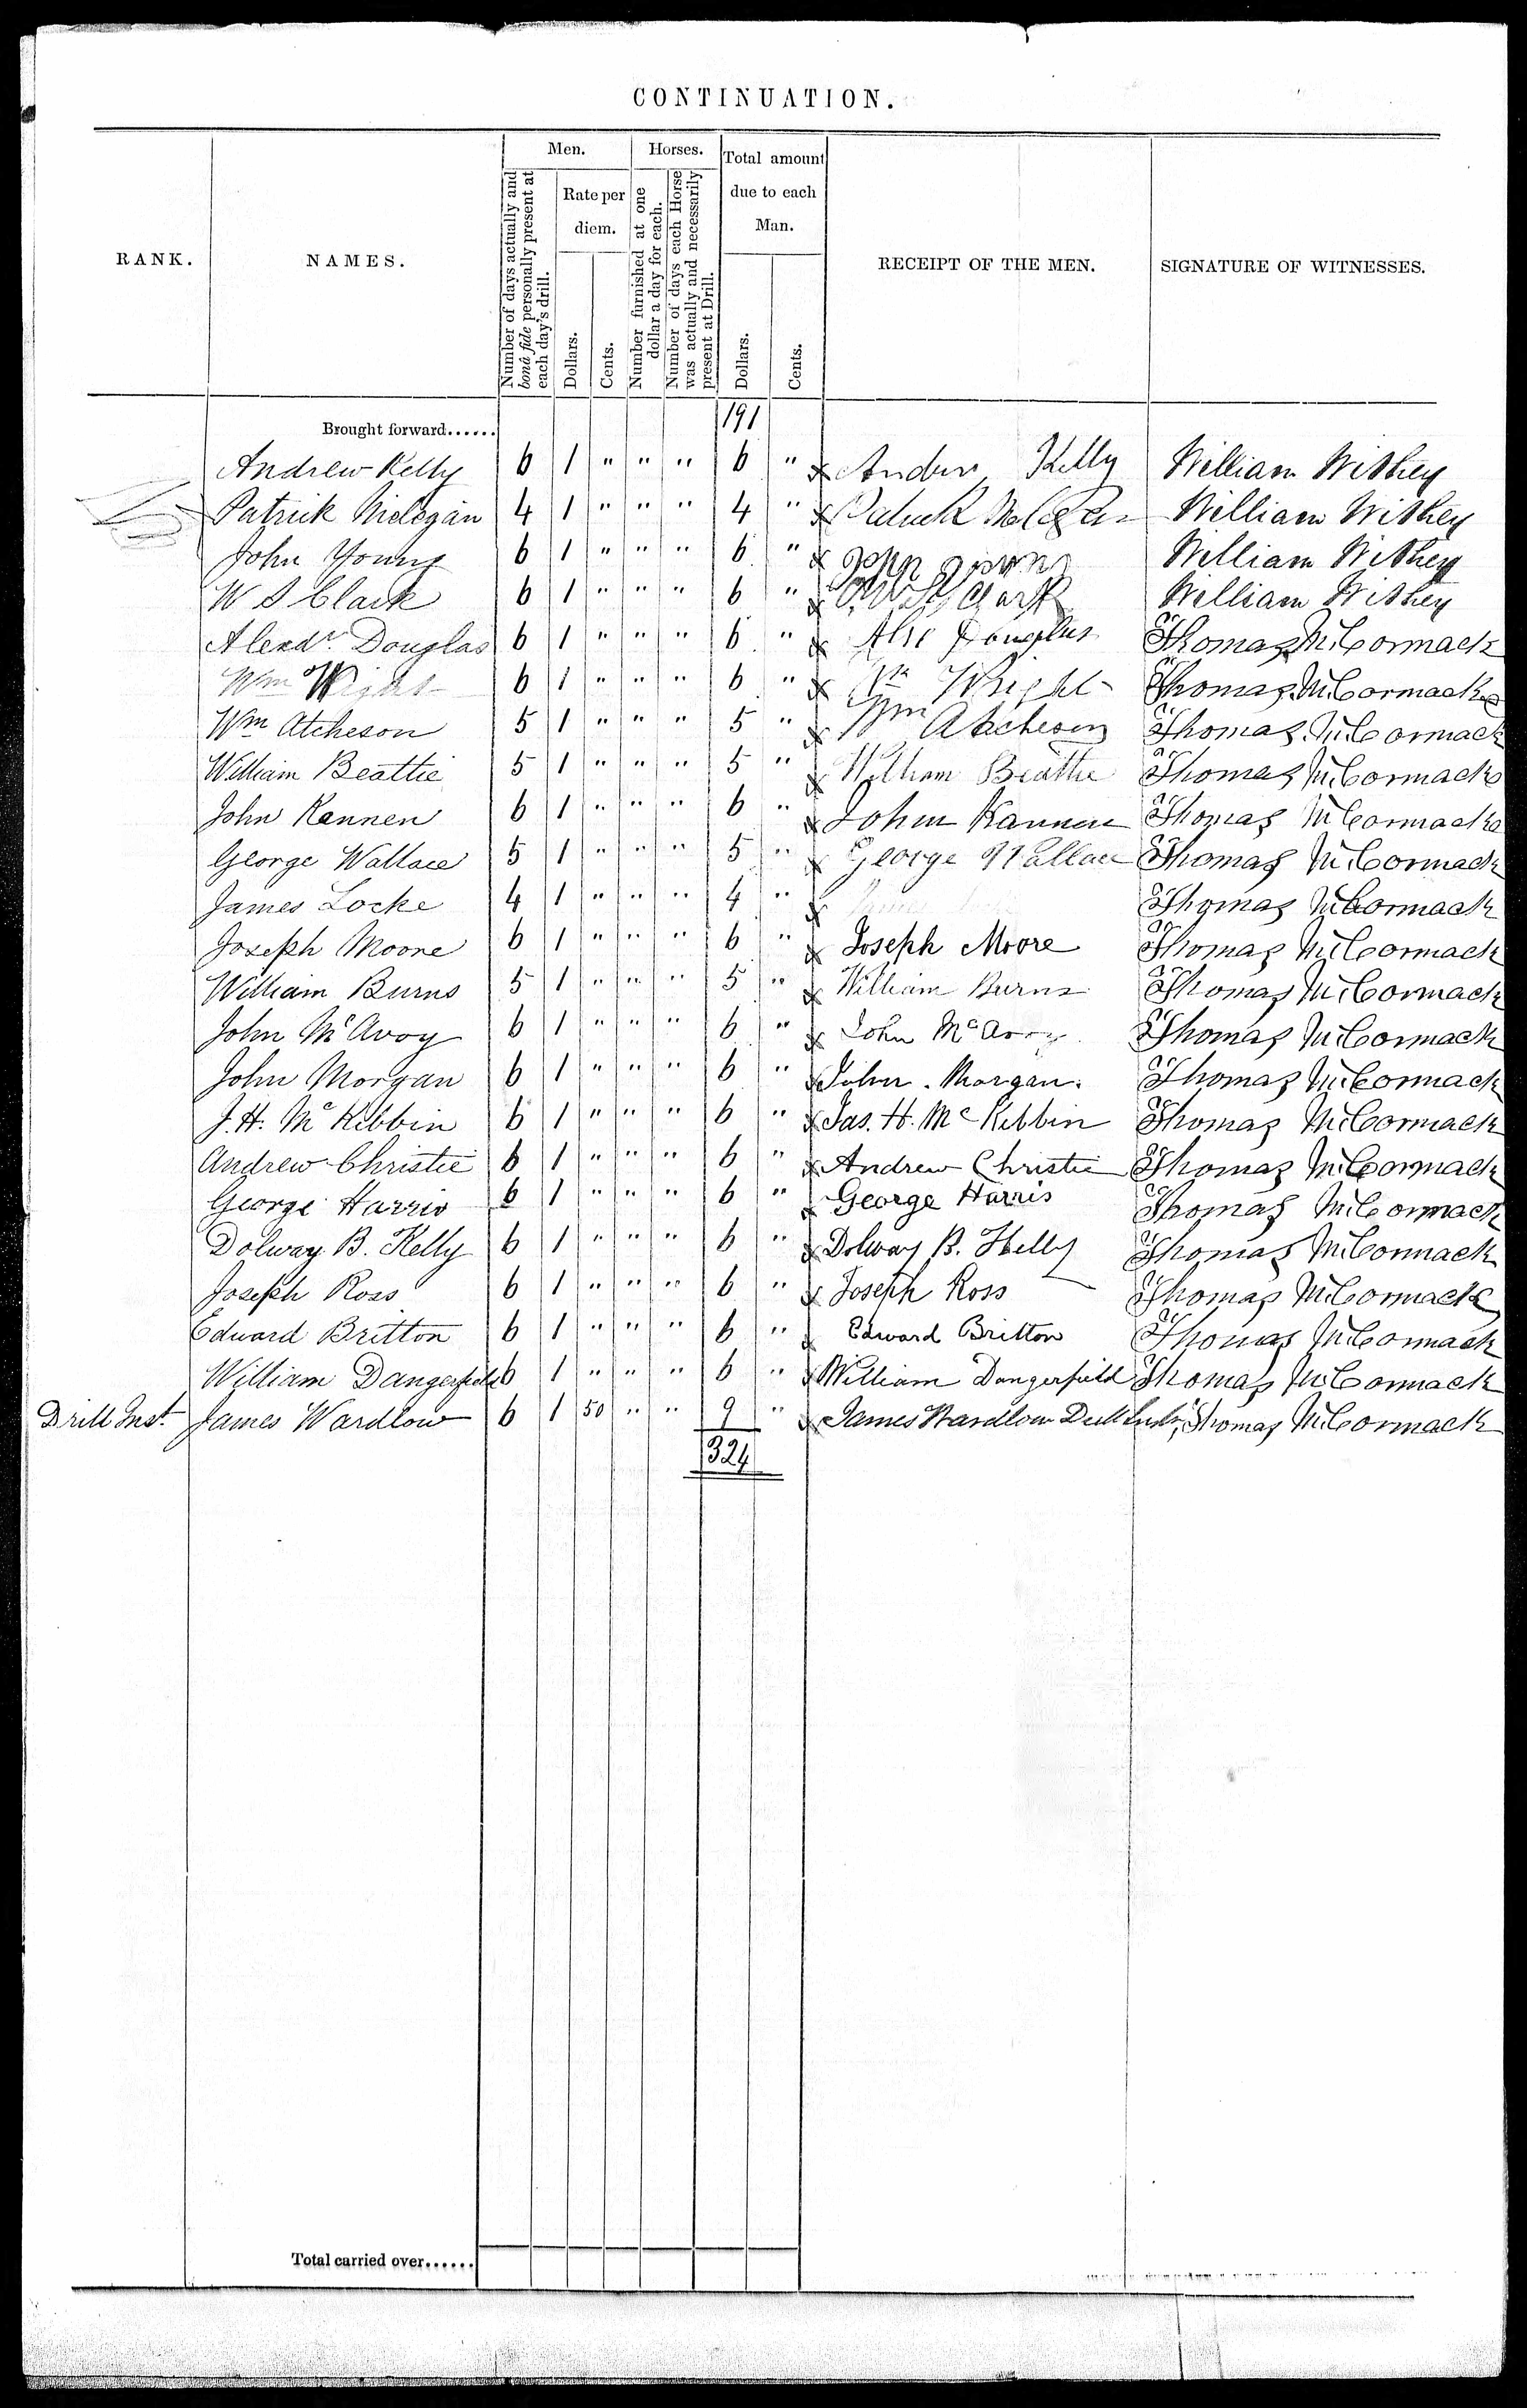 CONTINUATION.
RANK.
NAMES.
Men.
Number of days actually and bonâ fide personally present at each day's drill.
Rate per diem.
Dollars.
Cents.
Horses.
Number furnished at one dollar a day for each.
Number of days each Horse was actually and necessarily present at Drill.
Total amount due to each Man.
Dollars.
Cents.
RECEIPT OF THE MEN.
SIGNATURE OF WITNESSES.
Brought forward...... 191
Andrew Kelly 6 1 " " " 6 " x Kelly William Withey
Patrick 4 1 " " " 4 " x Patrick William Withey
John Young 6 1 " " " 6 " x John Young William Withey
W S Clark 6 1 " " " 6 " x Clark William Withey
Alexdr. Douglas 6 1 " " " 6 " x Douglas Thomas McCormack
Wm Wright 6 1 " " " 6 " x Wm Wright Thomas McCormack
Wm Atcheson 5 1 " " " 5 " x Wm Atcheson Thomas McCormack
William Beattie 5 1 " " " 5 " x William Beattie Thomas McCormack
John Kannen 6 1 " " " 6 " x John Kannen Thomas McCormack
George Wallace 5 1 " " " 5 " x George Wallace Thomas McCormack
James Locke 4 1 " " " 4 " x James Thomas McCormack
Joseph Moore 6 1 " " " 6 " x Joseph Moore Thomas McCormack
William Burns 5 1 " " " 5 " x William Burns Thomas McCormack
John McAvoy 6 1 " " " 6 " x John McAvoy Thomas McCormack
John Morgan 6 1 " " " 6 " x John Morgan. Thomas McCormack
J. H. McKibbin 6 1 " " " 6 " x Jas. H. McKibbin Thomas McCormack
Andrew Christie 6 1 " " " 6 " x Andrew Christie Thomas McCormack
George Harris 6 1 " " " 6 " x George Harris Thomas McCormack
Dolway B. Kelly 6 1 " " " 6 " x Dolway B. Kelly Thomas McCormack
Joseph Ross 6 1 " " " 6 " x Joseph Ross Thomas McCormack
Edward Britton 6 1 " " " 6 " x Edward Britton Thomas McCormack
William Dangerfield 6 1 " " " 6 " x William Dangerfield Thomas McCormack
Drill Inst. James Wardlow 6 1 50 " " 9 " x James Wardlow Drill Instr. Thomas McCormack
324
Total carried over......